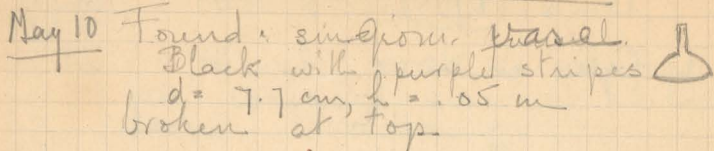 May 10 Found: sm. vase
Black with purple stripes
d = 7.7 cm, h = .05 m
broken at top.